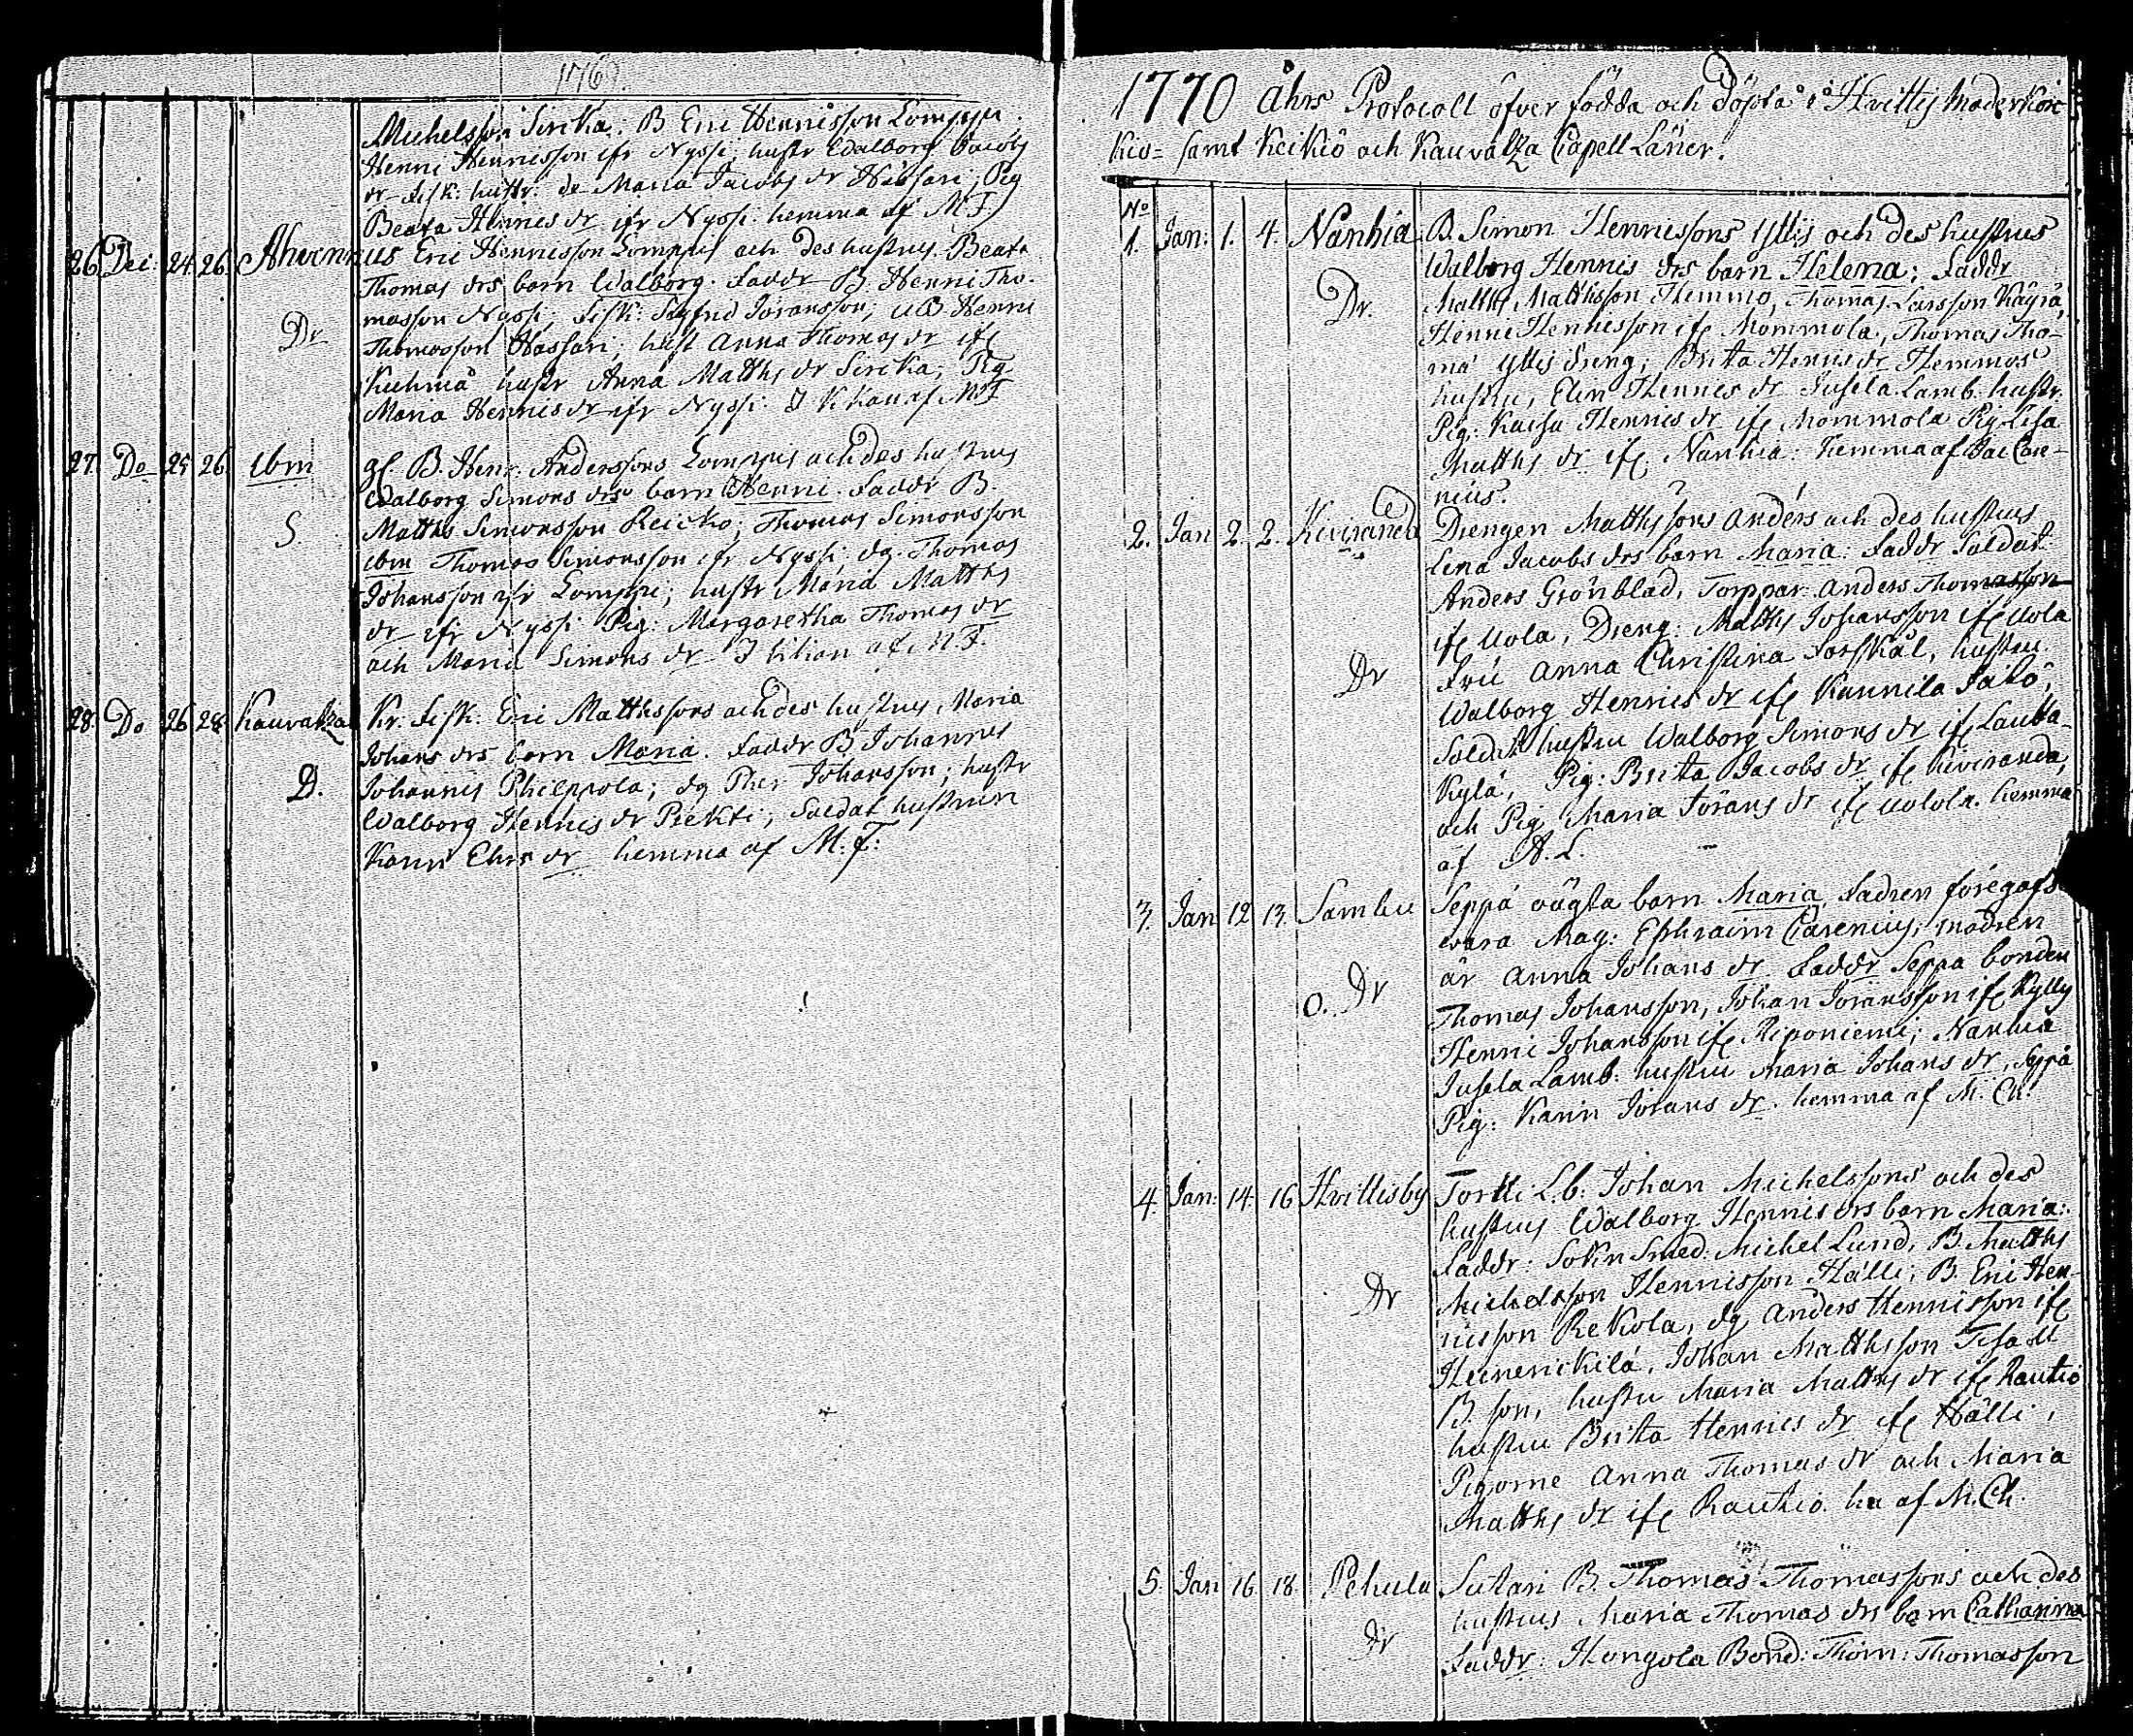 176
Michelsson Sirika: B Eric Hennisson Lomppi
Henni Hennisson ifr Nyssi; hustr Walborg Jacobs
dr fisk: hustr: de Maria Jacobs dr Hassari; Pig
Beata Hennis dr ifr Nyssi: hemma af M F.
26 Dec: 24 26 Ahvennus Eric Hennisson Lomppis och des hustrus Beata
Thomas drs barn Walborg. Faddr B. Henni Tho-
Dr masson Nyssi; fisk: Sigfred Joransson; UB Henni
Thomasson Hassari; hust Anna Thomas dr ifr
Kuhmå hustr Anna Matths dr Sirika; Pig
Maria Hennis dr ifr Nyssi: I Kikan af M F
27. Do 25 26 ibm gf. B. Henr: Anderssons Lomppis och des hustrus
Walborg Simons drs barn Henni. Faddr B.
S. Matths Simonsson Reicko; Thomas Simonsson
ibm Thomas Simonsson ifr Nyssi; dg. Thomas
Johansson ifr Lomppi; hustr Maria Matths
dr ifr Nyssi Pig: Margaretha Thomas dr
och Maria Simons dr I kikan af M. F.
28. Do 26 28 Kauvatza Kr. fisk: Eric Matthssons och des hustrus Maria
Johans drs barn Maria. Faddr B Johannes
D. Johannis Philppola; dg Pher Johansson; hustr
Walborg Hennis dr Piekti; Soldat hustrun
Karin Ehrs dr hemma af M. F:
1770 Åhrs Protocoll öfver födda och döpta i Hvittis Moderkör
kio- samt Keikiö och Kauvatza Capell Läner.
No
1. Jan: 1. 4. Nanhia B. Simon Hennissons Yllis och des hustrus
Walborg Hennis drs barn Helena; Faddr
Dr. Matths Matthsson Hemmo, Thomas Larsson Käyrä,
Henni Hennisson ifr Mommola, Thomas Tho-
ma Yllis dreng; Brita Hennis dr Hemmos
hustru, Elin Hennis dr Jusela Lamb. hustr.
Pig: Kaisa Hennis dr ifr Mommola Pig Lisa
Matths dr ifr Nanhia: hemma af Jac Care-
nius.
2. Jan 2. 2. Keviranda Drengen Matthssons Anders och des hustrus
Lena Jacobs drs barn Maria: Faddr Soldat
Anders Grönblad, Torppar: Anders Thomasson
ifr Uola, Dreng: Matths Johansson ifr Uola
Dr Fru Anna Christina Forsskål, hustru
Walborg Hennis dr ifr Kunnila Salo,
Soldat hustru Walborg Simons dr ifr Lautta-
Kylä, Pig: Brita Jacobs dr ifr Keviranda,
och Pig Maria Jörans dr ifr Uolola. hemma
af A. L.
3. Jan 12 13. Sambu Seppä oägta barn Maria, Fadren föregafs
wara Mag: Ephraim Carenius; modren
O. Dr är Anna Johans dr. Faddr Seppä bonden
Thomas Johansson, Johan Joransson ifr Kylly
Henni Johansson ifr Riponiemi; Nanhia
Jusela Lamb: hustru Maria Johans dr, Seppä
Pig: Karin Jörans dr. hemma af M. Ch.
4. Jan: 14. 16 Hvittisby Tortti L.b. Johan Michelssons och des
hustrus Walborg Hennis drs barn Maria:
Faddr: Sokn Smed: Michel Lund, B. Matths
Dr Michelsson Hennisson Hälli; B. Eric Hen-
nisson Rekola, dg Anders Hennisson ifr
Heinerickilä, Johan Matthsson
B. son, hustru Maria Matths dr ifr Rautio
hustru Brita Hennis dr ifr Hälli,
Pigorne Anna Thomas dr och Maria
Matths dr ifr Rautio. ha af M. Ch.
5. Jan 16 18. Pehula Sutari B. Thomas Thomassons och des
hustrus Maria Thomas drs barn Catharina
Dr Faddr: Hongola Bond: Thom: Thomasson